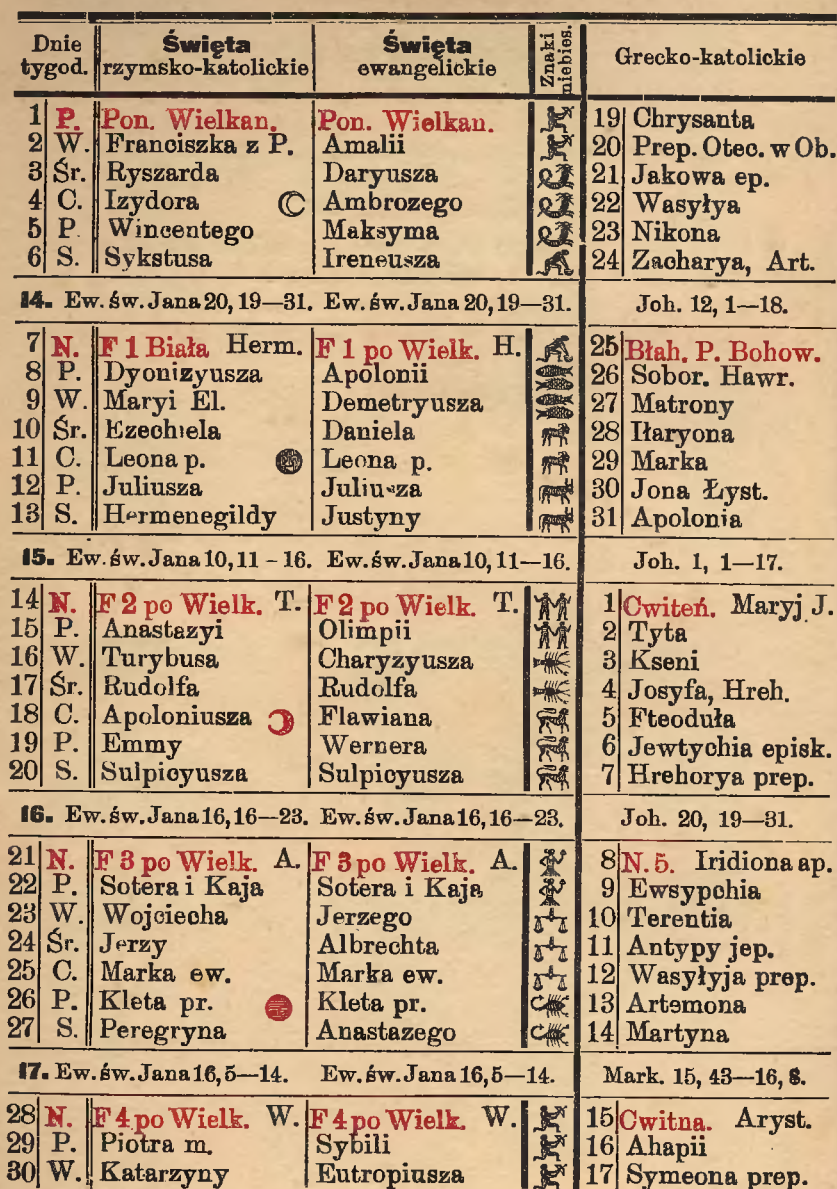 Dnie tygod. Święta rzymsko-katolickie Święta ewangelickie Znaki niebies. Grecko-katolickie
1 P. Pon. Wielkan. Pon. Wielkan. 19 Chrysanta
2 W. Franciszka z P. Amalii 20 Prep. Otec. w Ob.
3 Śr. Ryszarda Daryusza 21 Jakowa ep.
4 C. Izydora Ambrozego 22 Wasyłya
5 P. Wincentego Maksyma 23 Nikona
6 S. Sykstusa Ireneusza 24 Zacharya, Art.
14. Ew. św. Jana 20, 19—31. Ew. św. Jana 20, 19—31. Joh. 12, 1—18.
7 N. F 1 Biała Herm. F 1 po Wielk. H. 25 Błah. P. Bohow.
8 P. Dyonizyusza Apolonii 26 Sobor. Hawr.
9 W. Maryi El. Demetryusza 27 Matrony
10 Śr. Ezechiela Daniela 28 Iłaryona
11 C. Leona p. Leona p. 29 Marka
12 P. Juliusza Juliusza 30 Jona Łyst.
13 S. Hermenegildy Justyny 31 Apolonia
15. Ew. św. Jana 10, 11-16. Ew. św. Jana 10, 11—16. Joh. 1, 1—17.
14 N. F 2 po Wielk. T. F 2 po Wielk. T. 1 Cwiteń. Maryj J.
15 P. Anastazyi Olimpii 2 Tyta
16 W. Turybusa Charyzyusza 3 Kseni
17 Śr. Rudolfa Rudolfa 4 Josyfa, Hreh.
18 C. Apoloniusza Flawiana 5 Fteoduła
19 P. Emmy Wernera 6 Jewtychia episk.
20 S. Sulpicyusza Sulpicyusza 7 Hrehorya prep.
16. Ew. św. Jana 16, 16—23. Ew. św. Jana 16, 16—23. Joh. 20, 19—31.
21 N. F 3 po Wielk. A. F 3 po Wielk. A. 8 N. 5. Iridiona ap.
22 P. Sotera i Kaja Sotera i Kaja 9 Ewsypchia
23 W. Wojciecha Jerzego 10 Terentia
24 Śr. Jerzy Albrechta 11 Antypy jep.
25 C. Marka ew. Marka ew. 12 Wasyłyja prep.
26 P. Kleta pr. Kleta pr. 13 Artemona
27 S. Peregryna Anastazego 14 Martyna
17. Ew. św. Jana 16, 5—14. Ew. św. Jana 16, 5—14. Mark. 15, 43—16, 8.
28 N. F 4 po Wielk. W. F 4 po Wielk. W. 15 Cwitna. Aryst.
29 P. Piotra m. Sybili 16 Ahapii
30 W. Katarzyny Eutropiusza 17 Symeona prep.